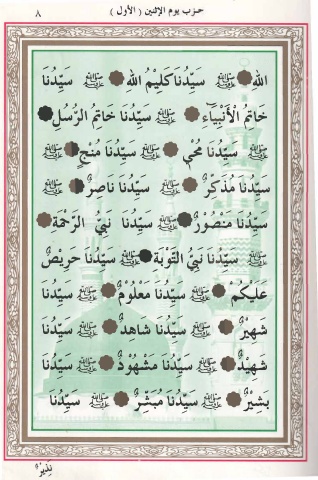 حزب يوم الإثنين (الأول) ٨
اللهِ ﷺ سَيِّدُنَا كَلِيمُ اللهِ ﷺ سَيِّدُنَا
خَاتِمُ الْأَنْبِيَاءِ ﷺ سَيِّدُنَا خَاتِمُ الرُّسُلِ
ﷺ سَيِّدُنَا مُحْيٍ ﷺ سَيِّدُنَا مُنْجٍ ﷺ
سَيِّدُنَا مُذَكِّرٌ ﷺ سَيِّدُنَا نَاصِرٌ ﷺ
سَيِّدُنَا مَنْصُورٌ ﷺ سَيِّدُنَا نَبِيُّ الرَّحْمَةِ
ﷺ سَيِّدُنَا نَبِيُّ التَّوْبَةِ ﷺ سَيِّدُنَا حَرِيصٌ
عَلَيْكُمْ ﷺ سَيِّدُنَا مَعْلُومٌ ﷺ سَيِّدُنَا
شَهِيرٌ ﷺ سَيِّدُنَا شَاهِدٌ ﷺ سَيِّدُنَا
شَهِيدٌ ﷺ سَيِّدُنَا مَشْهُودٌ ﷺ سَيِّدُنَا
بَشِيرٌ ﷺ سَيِّدُنَا مُبَشِّرٌ ﷺ سَيِّدُنَا
نَذِيرٌ